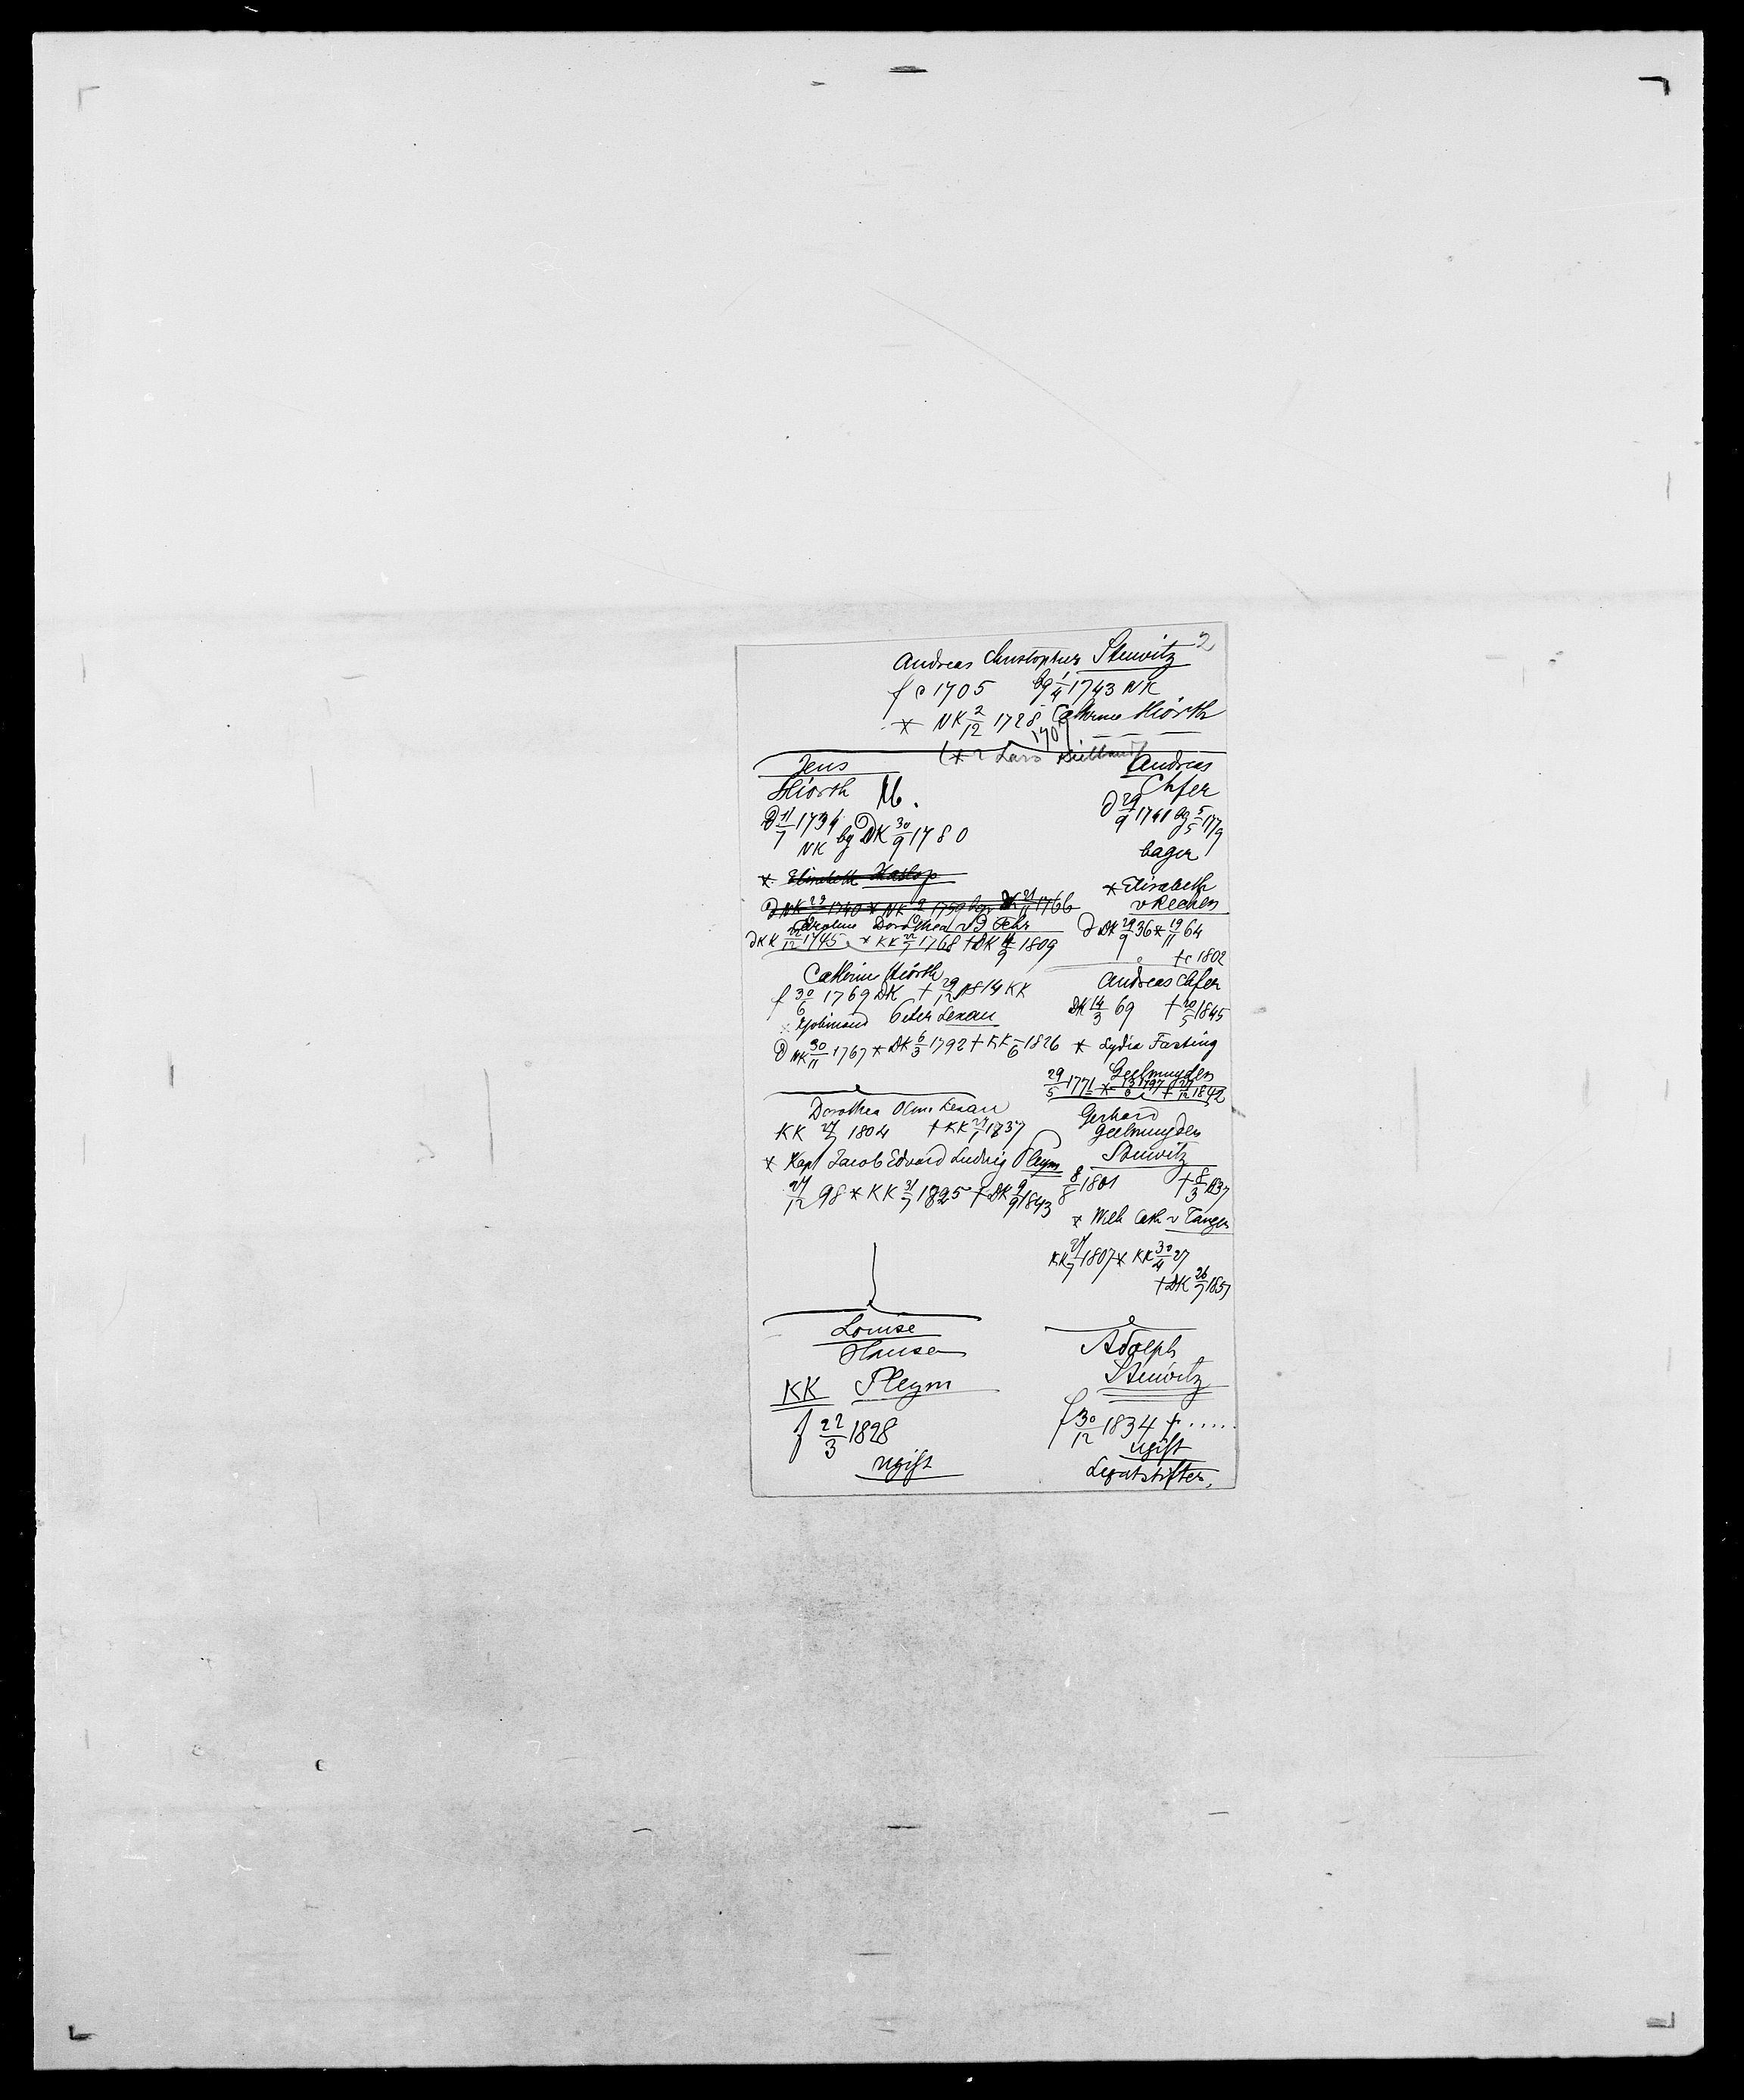 Andreas Christopher Stuwitz 2
f c 1705 bg 1/4 1743 NK
* NK 2/12 1728 Cathrine Hiorth
1707
(* ? Lars
Jens
Hiorth M.
D 11/7 1734
NK bg DK 30/9 1780
* Elisabeth Hastop
D NK 23/ 1740 * NK 1759 bgr DK 21/11 1766
Dorothea v D Fehr
D KK 22/12 1745 * KK 22/7 1768 † DK 14/9 1809
Cathrine Hiorth
f 30/6 1769 DK † 29/12 1814 KK
Peter Lexau
D NK 30/11 1767 * DK 6/3 1792 † KK 6 1826
Dorothea Oline Lexau
KK 27/7 1804 † KK 27/1 1837
* Kapt Jacob Edvard Ludvig Pleym
27/12 98 * KK 31/7 1825 † DK 9/9 1843
Louise
Hansa
KK Pleym
f 22/3 1828
ugift
Andreas
Chfer
D 29/9 1741 bg 5/5 1779
bager
* Elisabeth
v Recken
D DK 29/9 36 * 19/11 64
† c 1802
Andreas Chfer
DK 14/3 69 † 20/5 1845
* Lydia Fasting
Geelmuyden
29/5 1771 * 13/6 1797 † 27/12 1842
Gerhard
Geelmuyden
Stuwitz
8/8 1801 † 8/3 1837
* Wilh Cath v Tangen
KK 27/7 1807 * KK 30/4 27
† DK 26/7 1857
Adolph
Stuwitz
f 30/12 1834 † .....
ugift
Legatstifter.